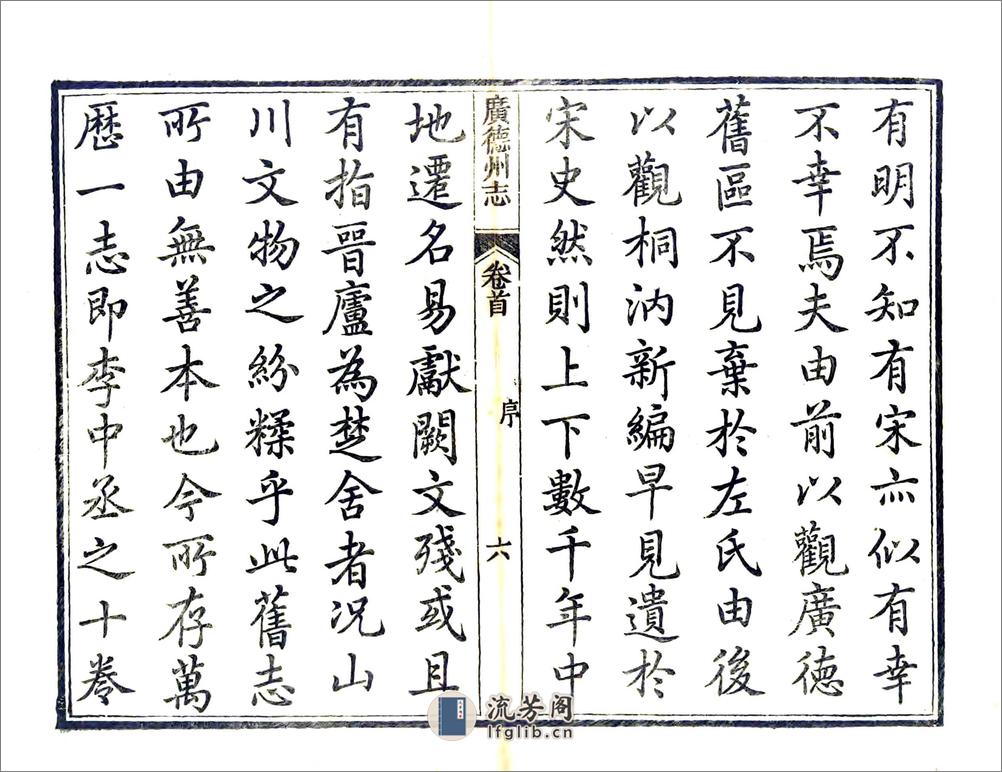 有明不知有宋亦似有幸
不幸焉夫由前以觀廣德
舊區不見棄於左氏由後
以觀桐汭新編早見遺於
宋史然則上下數千年中
廣德州志 卷首 序 六
地遷名易獻闕文殘或且
有指晉廬為楚舍者況山
川文物之紛糅乎此舊志
所由無善本也今所存萬
歷一志即李中丞之十卷
流芳阁
lfglib.cn